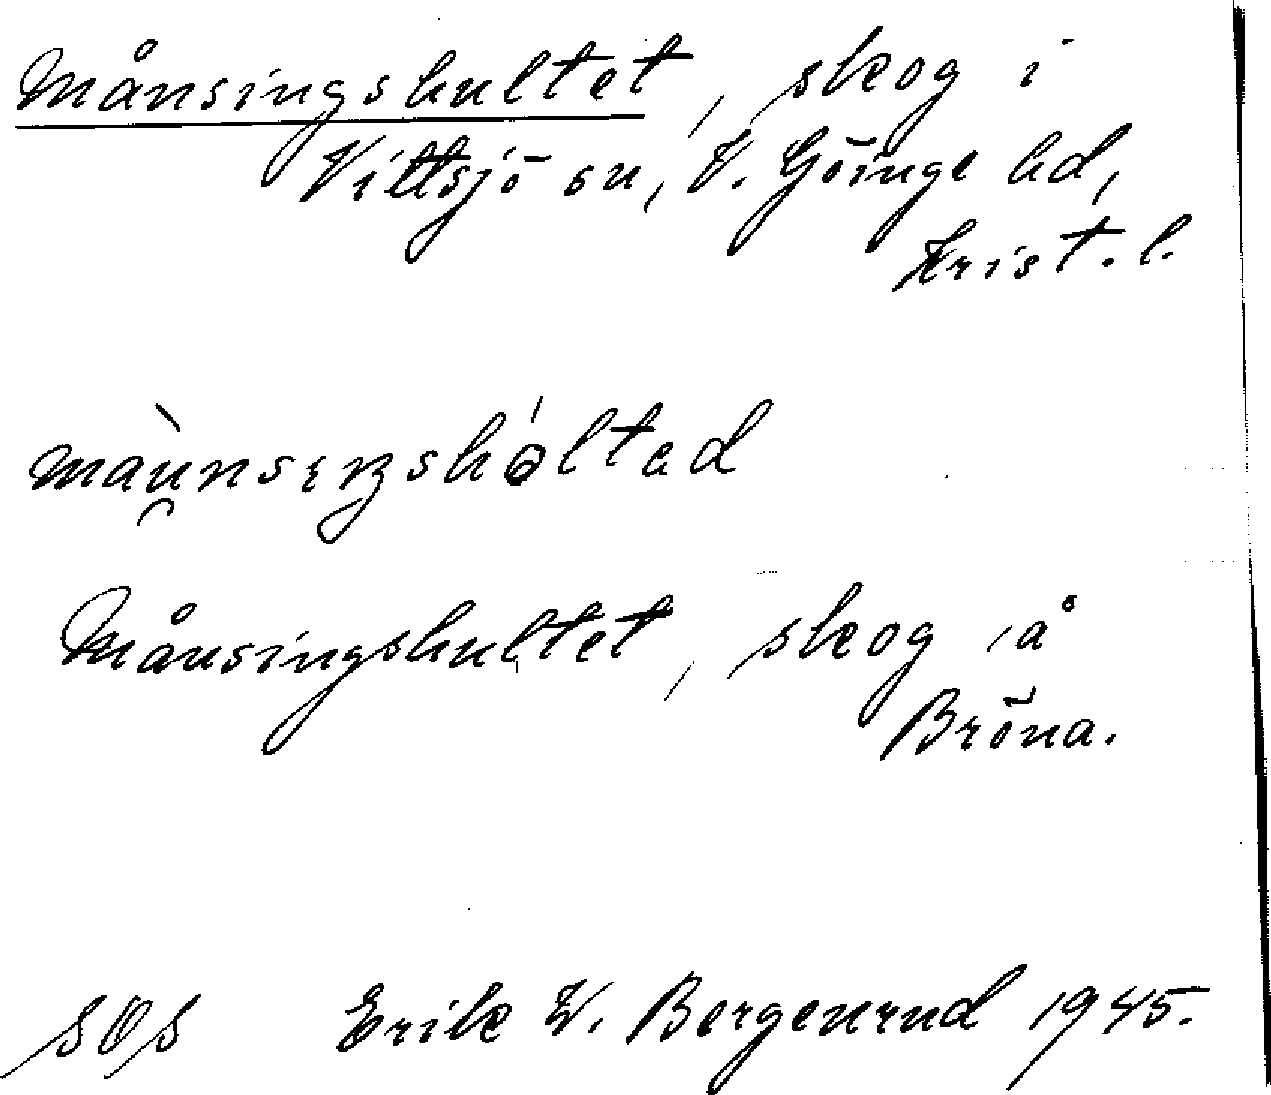 Månsingshultet, skog i
Vittsjö sn, V. Göinge hd,
Krist. l.
Månsingshultet, skog å
Bröna.
SOS Erik W. Bergenrud 1945.